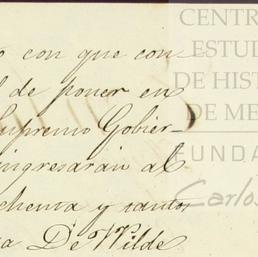 o con que con
l de poner en
Supremo Gobier-
ingresarán al
chenta y tantos
a De Wilde
CENTR
ESTUD
DE HIST
DE ME
FUNDA
Carlos